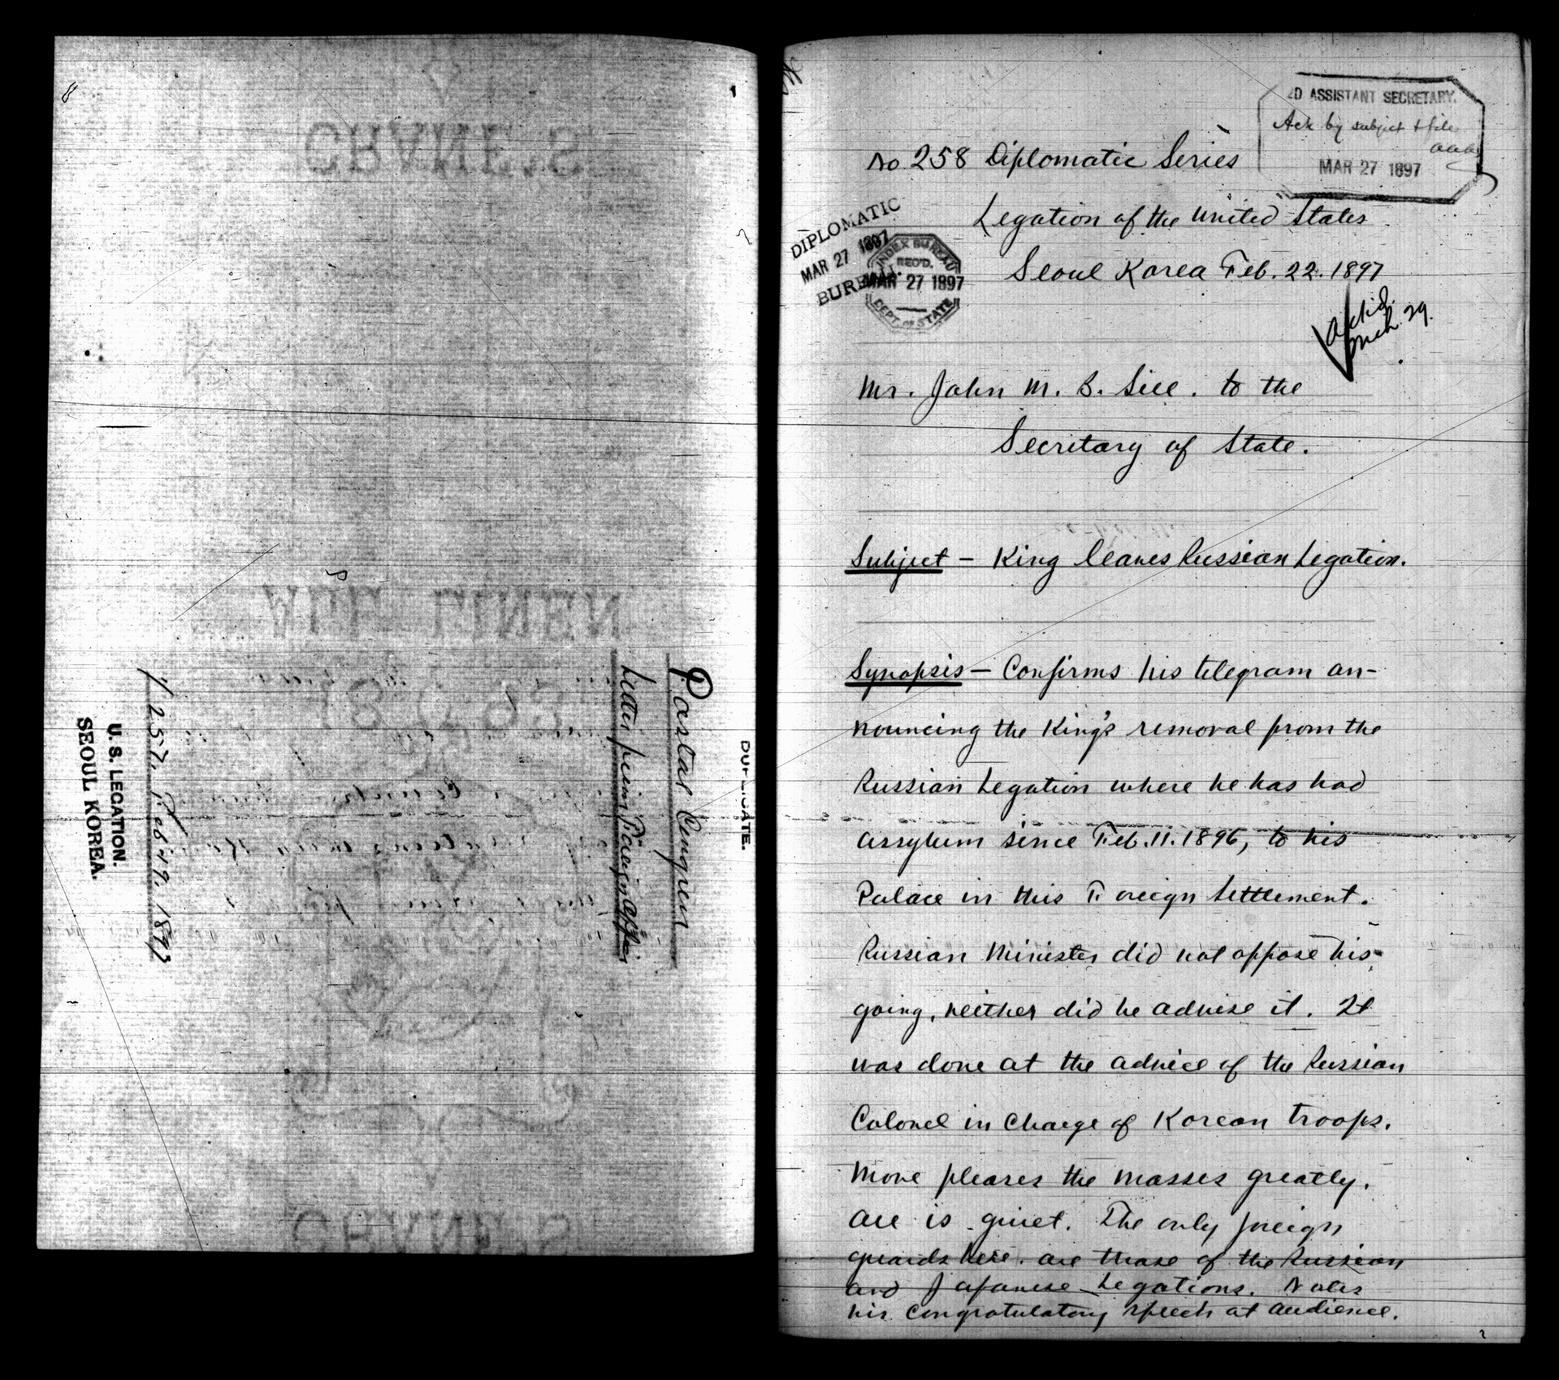 CRANE'S
ALL LINEN
1895
CRANE'S
Postal Congress
Letter from Foreign Office
DUPLICATE.
# 257. Feb 19. 1897
U. S. LEGATION.
SEOUL KOREA.
2D ASSISTANT SECRETARY.
Ack by subject & file
aaa
MAR 27 1897
No. 258 Diplomatic Series
Legation of the United States
Seoul Korea Feb. 22. 1897
DIPLOMATIC
MAR 27 1897
BUREAU.
INDEX BUREAU
REC'D.
MAR 27 1897
DEPT. OF STATE
Ackd.
Mch. 29.
Mr. John M. B. Sill. to the
Secretary of State.
Subject – King leaves Russian Legation.
Synopsis – Confirms his telegram an-
nouncing the King's removal from the
Russian Legation where he has had
assylum since Feb. 11. 1896, to his
Palace in this Foreign Settlement.
Russian Minister did not oppose his
going, neither did he advise it. It
was done at the advice of the Russian
Colonel in charge of Korean troops.
Move pleases the masses greatly.
All is quiet. The only foreign
guards here. are those of the Russian
and Japanese Legations. Notes
his congratulatory speech at audience.